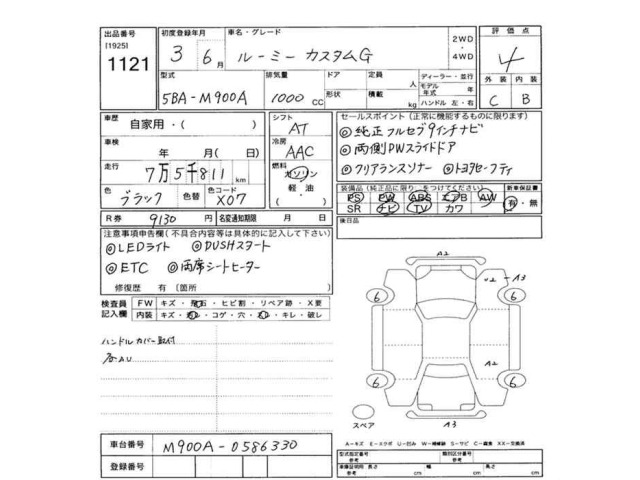 出品番号 初度登録年月 車名・グレード 2WD 評価点
[1925] 3 年 6月 ルーミー カスタムG ・4WD 4
1121
型式 排気量 ドア 定員 人 ディーラー・並行 外装 内装
5BA-M900A 1000 CC 形状 積載 kg モデル年式 年 C B
ハンドル 左・右
車歴 自家用・( ) シフト AT セールスポイント(正常に機能するものに限ります)
◎純正フルセグ9インチナビ
車検 年 月( 日) 冷房 AAC ◎両側PWスライドドア
走行 7万5千811km 燃料 ガソリン ◎クリアランスソナー ◎トヨタセーフティ
色 ブラック 色替 色コード X07 軽油・( ) 装備品(純正品に限り○をつけてください) 新車保証書
PS PW ABS エアB AW 有・無
SR ナビ TV カワ
R券 9130 円 名変通知期限 月 日 後日品
注意事項申告欄(不具合内容等は具体的に記入して下さい)
◎LEDライト ◎PUSHスタート
◎ETC ◎両席シートヒーター
修復歴 有(箇所 )
検査員記入欄 FW キズ・飛石・ヒビ割・リペア跡・X要
内装 キズ・コゲ・穴・キレ・破レ
ハンドルカバー取付
A2
U2 A3
6 6
A2
6 6
A3
スペア
A-キズ E-エクボ U-凹み W-補修跡 S-サビ C-腐食 XX-交換済
車台番号 M900A-0586330 型式指定番号 参考 類別区分番号 参考
登録番号 車検証明細 参考 長さ cm 幅 cm 高さ cm